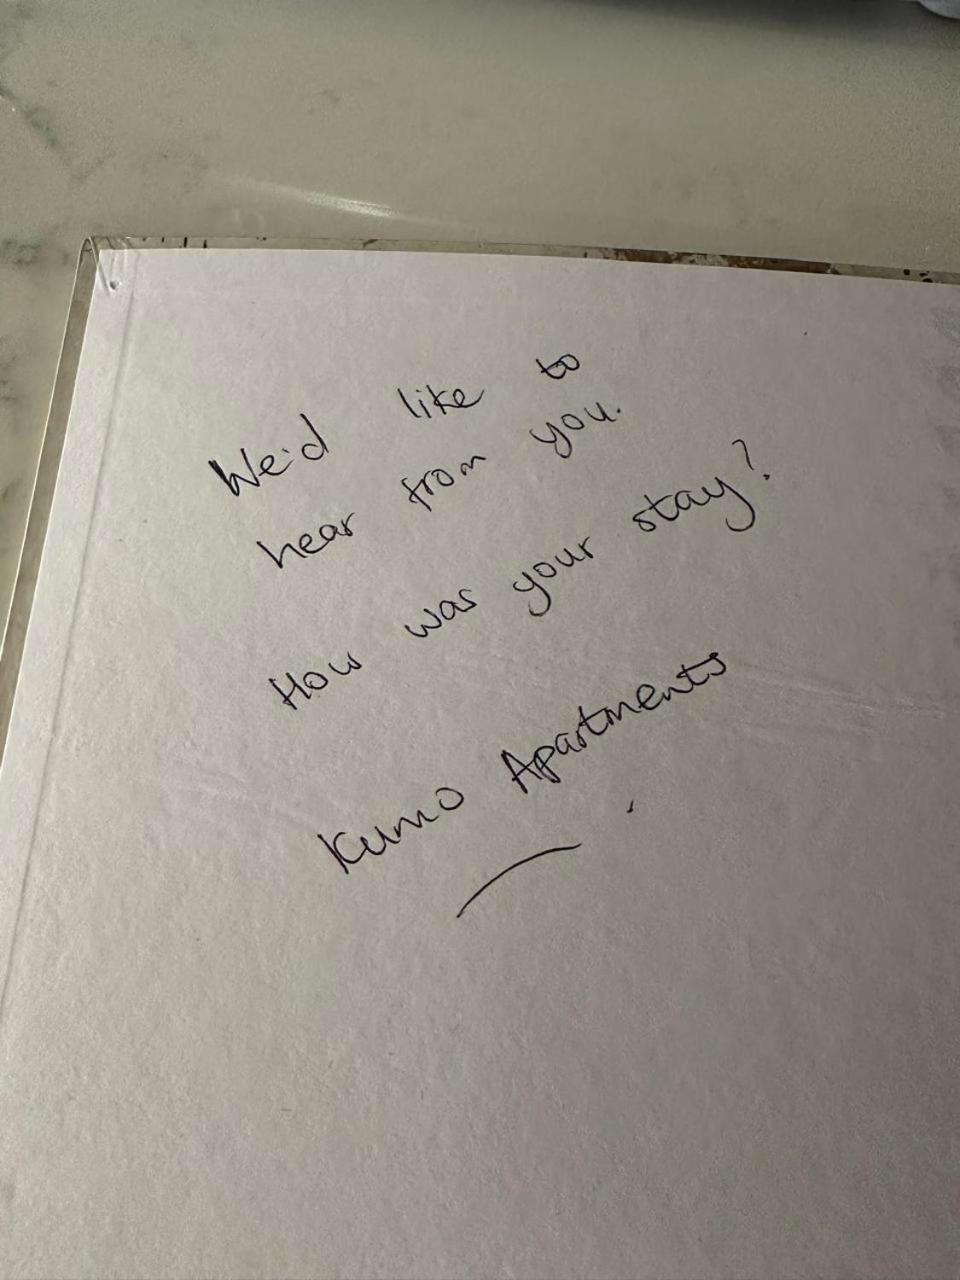 We'd like to
hear from you.
How was your stay?
Kumo Apartments